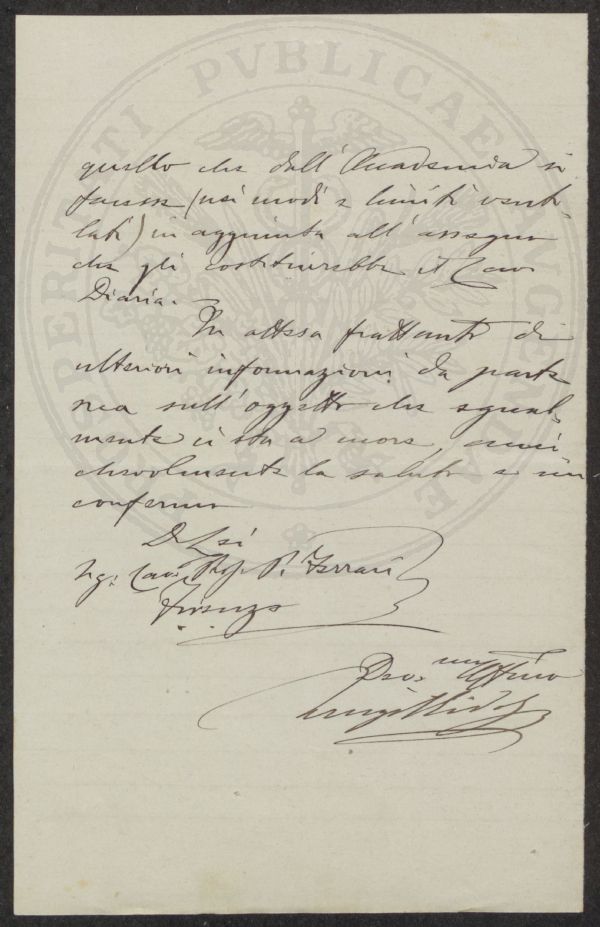 quello che dall'Accademia si
facesse (nei modi e limiti venti-
lati) in aggiunta all'assegno
che gli costituirebbe il Cav
Diaria. —
In attesa frattanto di
ulteriori informazioni da parte
sua sull'oggetto che egual-
mente ci sta a cuore, ami-
chevolmente la saluto e mi
confermo
Di Lei
Sig: Cav: Prof. P. Ferrari
Firenze
Dev.mo Aff.mo
Luigi